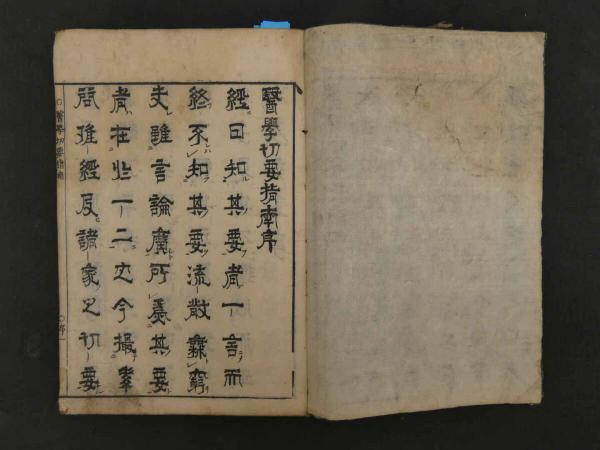 醫學切要指南序
經曰知其要者一言而
終不知其要流散無窮
夫雖言論廣所蔑其要
者在此一二也今撮素
問難經及諸家之切要